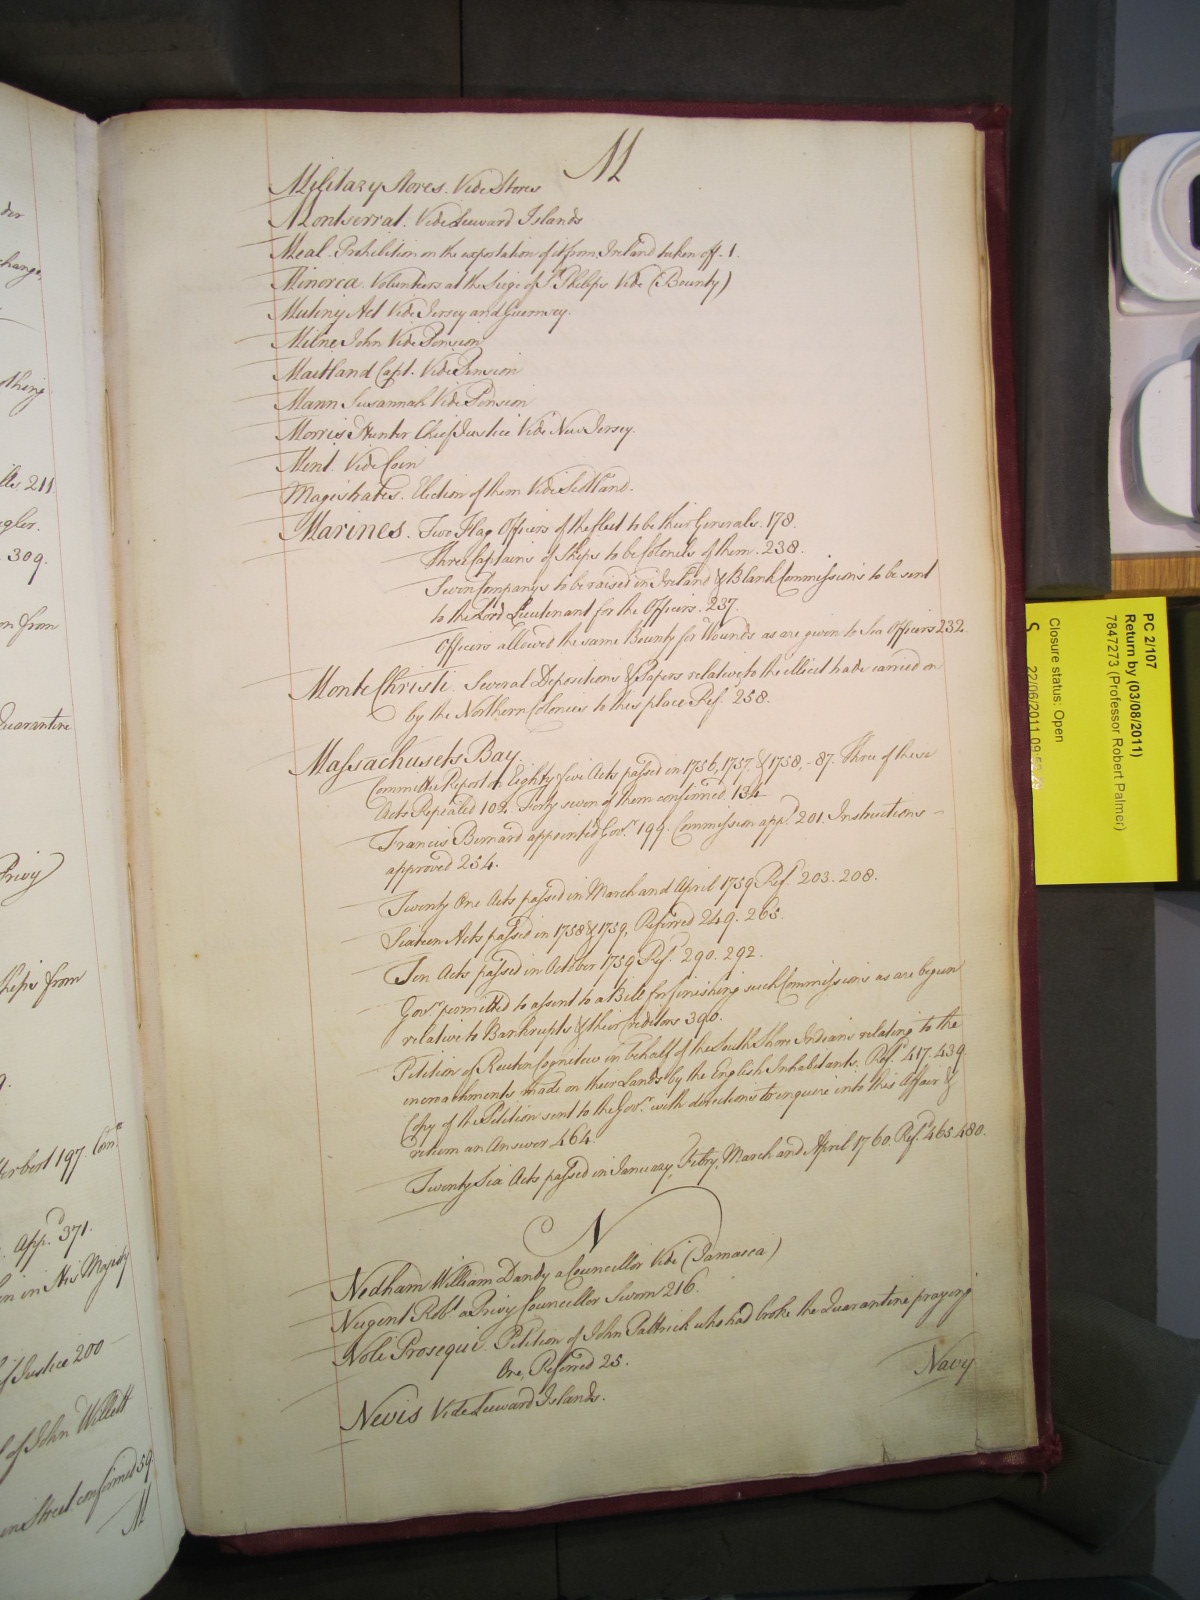 der
change,
othing
211
gler.
309.
on from
Quarantine
Privy
ships from
9.
Herbert 197. Com.n
App.d 371.
in His Majesty
of Justice 200
of John Willett
Street confirmed 59.
M
M
Military Stores. Vide Stores
Montserrat. Vide Leeward Islands
Meal. Prohibition on the exportation of it from Ireland taken off. 1.
Minorca. Volunteers at the Siege of St. Philips Vide (Bounty)
Mutiny Act Vide Jersey and Guernsey.
Milne John Vide Pension
Maitland Capt. Vide Pension
Mann Susannah Vide Pension
Morris Hunter Chief Justice Vide New Jersey.
Mint. Vide Coin
Magistrates. Election of them Vide Scotland.
Marines. Two Flag Officers of the fleet to be their Generals. 178.
Three Captains of Ships to be Colonels of them. 238.
Seven Companys to be raised in Ireland & Blank Commissions to be sent
to the Lord Lieutenant for the Officers. 237.
Officers allowed the same Bounty for Wounds as are given to Sea Officers 232.
Monte Christi. Several Depositions & Papers relative to the illicit trade carried on
by the Northern Colonies to this place Ref.d 258.
Massachusets Bay.
Committee Report on Eighty five Acts passed in 1756, 1757, & 1758, - 87. Three of these
Acts Repealed 102. Sixty seven of them confirmed 134
Francis Bernard appointed Gov.r 199. Commission app.d 201. Instructions -
approved 254.
Twenty One Acts passed in March and April 1759 Ref.d 203. 208.
Sixteen Acts passed in 1758 & 1759, Referred 249. 265.
Ten Acts passed in October 1759 Ref.d 290. 292.
Gov.r permitted to assent to a Bill for finishing such Commissions as are begun
relative to Bankrupts & their Creditors 390.
Petition of Reubin Cognitew in behalf of the South Shore Indians relating to the
incroachments made on their Lands by the English Inhabitants. Ref.d 417. 439.
Copy of the Petition sent to the Gov.r with directions to enquire into this Affair &
return an Answer 464.
Twenty Six Acts passed in January, Febry, March and April 1760. Ref.d 465. 480.
N
Nedham William Dandy a Councellor Vide (Jamaica)
Nugent Rob.t a Privy Councellor Sworn 216.
Noli Prosequi. Petition of John Pattrick who had broke the Quarantine praying
One, Referred 25.
Nevis Vide Leeward Islands.
Navy
PC 2/107
Return by (03/08/2011)
7847273 (Professor Robert Palmer)
Closure status: Open
S 22/06/2011